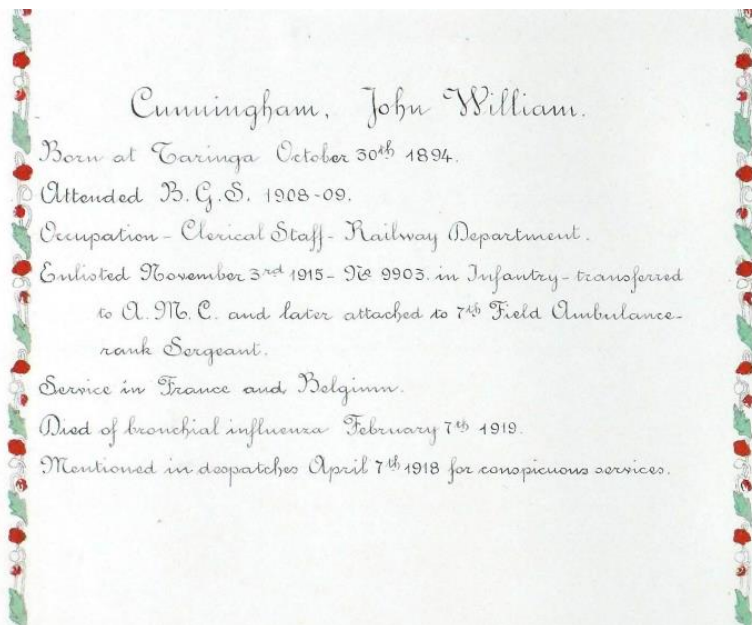 Cunningham, John William.
Born at Taringa October 30th 1894.
Attended B.G.S. 1908-09.
Occupation - Clerical Staff - Railway Department.
Enlisted November 3rd 1915 - No 9903. in Infantry - transferred
to A.M.C. and later attached to 7th Field Ambulance -
rank Sergeant.
Service in France and Belgium.
Died of bronchial influenza February 7th 1919.
Mentioned in despatches April 7th 1918 for conspicuous services.